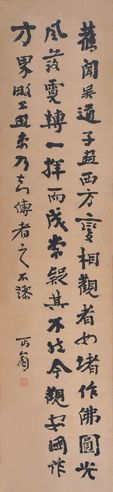 舊聞吳道子畫西方變相觀者如堵作佛圓光
風落電轉一揮而成常疑其不然今觀安國作
方界略不抒思乃知傳者之不謬